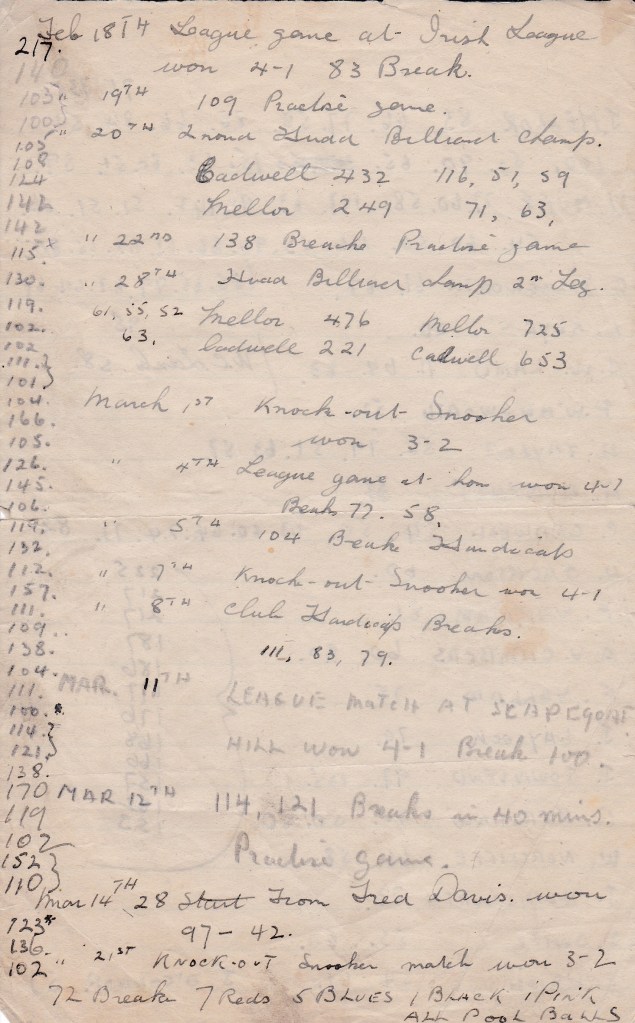 Feb 18TH League game at Irish League
217.
won 4-1 83 Break.
140
103 " 19TH 109 Practise game.
100
" 20TH 2nd Hudd Billiard Champ.
105
108
124 Cadwell 432 116, 51, 59
142 Mellor 249 71, 63,
142
115x " 22ND 138 Breacke Practise game
130. " 28TH Hudd Billiard Champ 2nd Leg.
119. 61, 55, 52 Mellor 476 Mellor 725
102. 63. Cadwell 221 Cadwell 653
102
111.
101
104. March 1ST Knock-out Snooker
166. won 3-2
105.
126. " 4TH League game at hom won 4-
145. Breaks 77. 58.
106.
119. " 5TH 104 Break Handicap
132.
112. " 7TH Knock-out-Snooker won 4-1
157.
111. " 8TH Club Handicap Breaks.
109..
138. 111, 83, 79.
104.
111. MAR. 11TH LEAGUE MATCH AT SCAPEGOAT
100.*
114. HILL WON 4-1 Break 100.
121.
138.
170 MAR 12TH 114, 121 Breaks in 40 mins.
119
102 Practise game.
152
110
Mar 14TH 28 Start From Fred Davis. won
123* 97-42.
136.
102 " 21ST KNOCK-OUT Snooker match won 3-2
72 Break 7 Reds 5 BLUES 1 BLACK 1 PINK
ALL POOL BALLS